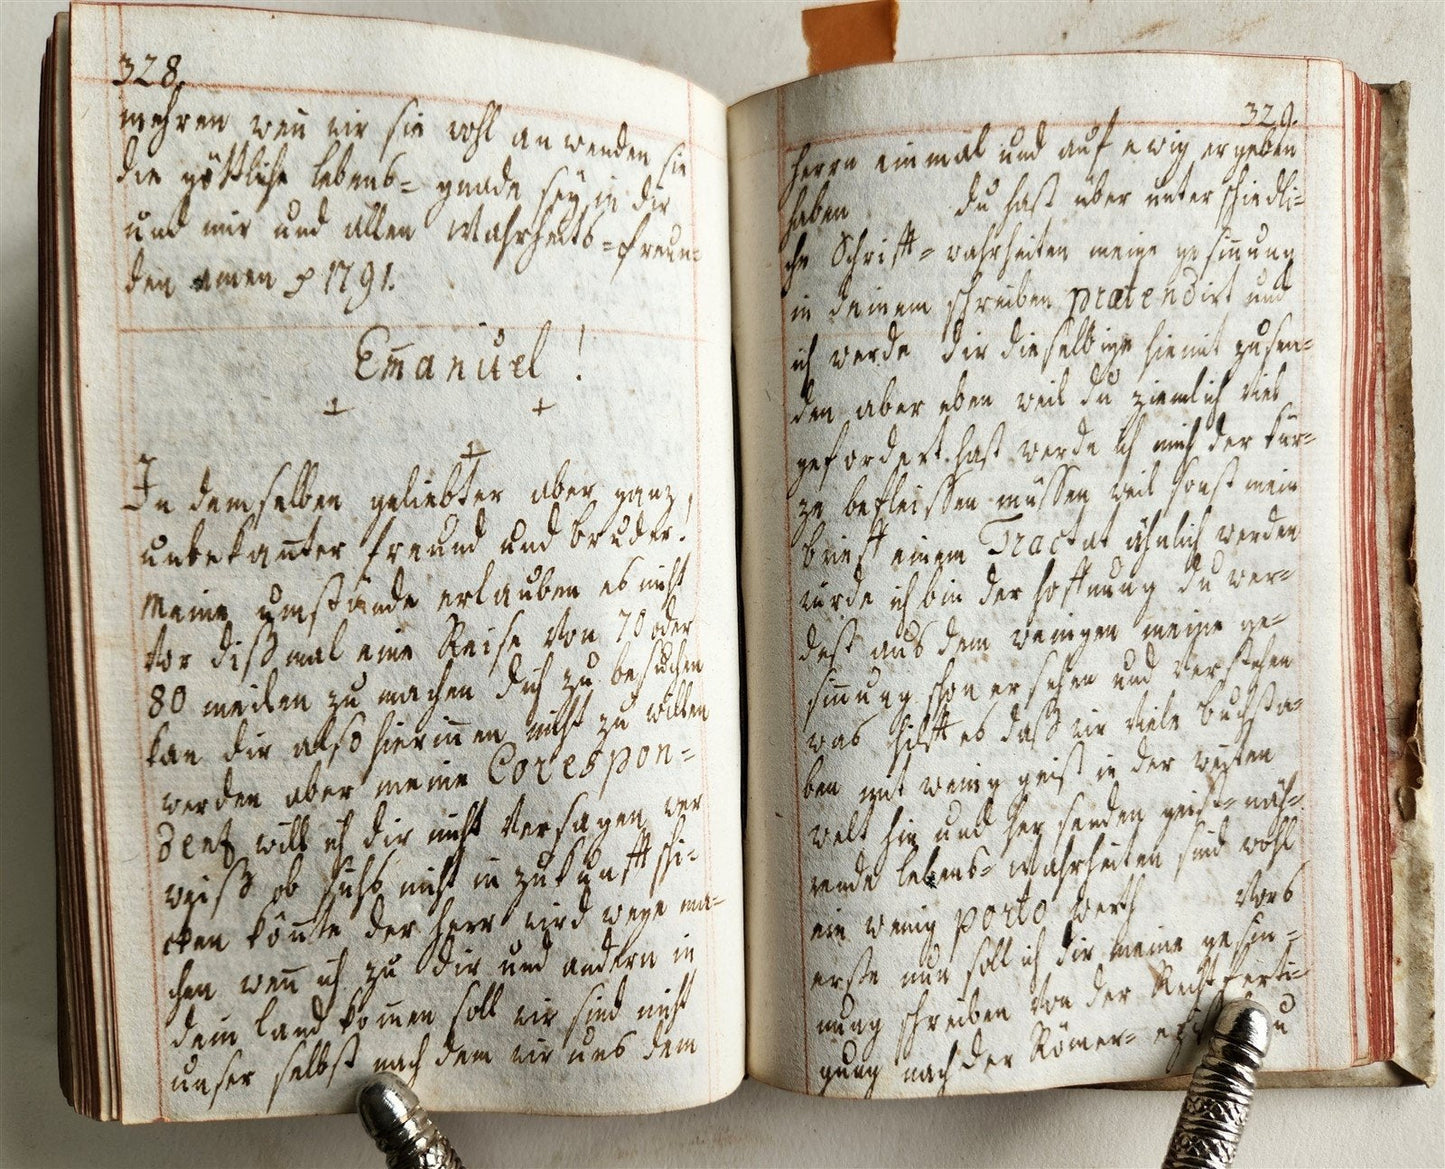 328.
mehren wen̄ wir sie wohl anwenden sie
die göttliche lebens= gnade sey in dir
und mir und allen Wahrheits=freun=
den amen 1791.
Em̄anuel !
In demselben geliebter aber ganz
unbekan̄ter freund und bruder!
Meine umstände erlauben es nicht
Vor dißmal eine Reise von 70 oder
80 meilen zu machen dich zu besuchen
kan dir also hierin̄en nicht zu willen
werden aber meine Corespon=
denz will ich dir nicht Versagen wer
weiß ob sichs nicht in zukunfft schi=
cken kön̄te der Herr wird wege ma=
chen wen̄ ich zu dir und andern in
dein land kom̄en soll wir sind nicht
unser selbst nach dem wir uns dem
329.
Herrn einmal und auf ewig ergeben
haben du hast über unterschiedli=
che Schrifft=wahrheiten meine gesin̄ung
in deinem schreiben prætendirt und
ich werde dir dieselbige hiemit zusen=
den aber eben weil du ziemlich viel
gefordert hast werde ich mich der kür=
ze befleissen müssen weil sonst mein
brieff einem Tractat ähnlich werden
würde ich bin der hoffnung du wer=
dest aus dem wenigen meine ge=
sin̄ung schon ersehen und verstehen
was hilfft es daß wir viele buchsta=
ben mit wenig geist in der weiten
welt hin und her senden geist=näh=
rende lebens=Wahrheiten sind wohl
ein wenig porto werth Vors
erste nun soll ich dir meine gesin=
nung schreiben von der Rechtferti=
gung nach der Römer=